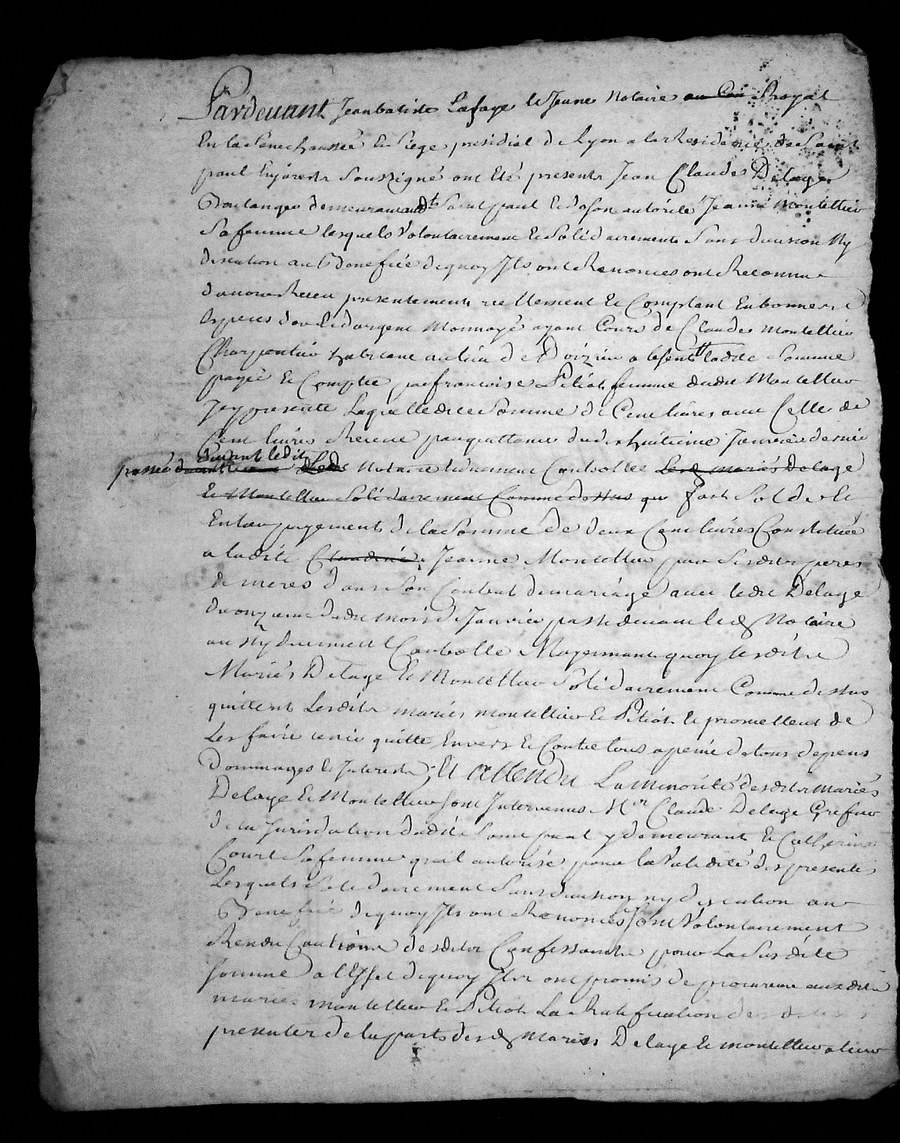 Pardevant Jean batiste Lafaye le Jeune Notaire Royal
En la Senechaussée Et Siege présidial de Ryon a la Residence de Saint
paul Soussigné ont Eté presents Jean Claude Delaye
Boulanger demeurant Saint paul Et de son autorité Jeanne Montellier
Sa femme lesquels Volontairement Et Solidairement Sans division Ny
discution au Benefice de quoy Ils ont Renoncés ont Reconnu
d'avoir Receu presentement reellement Et Comptant En bonnes
Especes d'or Et d'argent Monnoyé ayant Cours de Claude Montellier
Charpentier habitant au lieu de absent ladite Somme
payée Et Comptée par francoise Pitiot femme dudit Montellier
Icy presente Laquelle dite Somme de Cent livres avec Celle de
Cent livres Receue par quittance du dix huitieme Janvier dernier
passé devant ledit Notaire Controllée Les mariés Delaye
Et Montellier Solidairement Comme dessus que font Solde Et
Entier payement de la Somme de deux Cent livres Constituée
a ladite Claudine Jeanne Montellier par Sesdits peres
Et meres dans Son Contrat de mariage avec ledit Delaye
du onzieme dudit mois de Janvier passé devant led Notaire
aussy duement Controllé Moyennant quoy lesdits
Mariés Delaye Et Montellier Solidairement Comme dessus
quittent Lesdits mariés Montellier Et Pitiot Et promettent de
Les faire tenir quitte Envers Et Contre tous a peine de tous depens
Dommages Et Interets Et attendu La minorité desdits Mariés
Delaye Et Montellier Sont Intervenus Mr Claude Delaye Grefier
de la Jurisdiction dudit Saint paul y demeurant Et Catherine
Court Sa femme qu'il autorise pour la Validité des presentes
Lesquels Solidairement Sans division ny discution au
Benefice de quoy Ils ont Renoncés Sont Volontairement
Rendu Cautions desdits Confessants pour La Susdite
Somme a l'Effet de quoy Ils ont promis de procurer auxdits
mariés Montellier Et Pitiot La Ratification des
presentes de la part desd Mariés Delaye Et Montellier